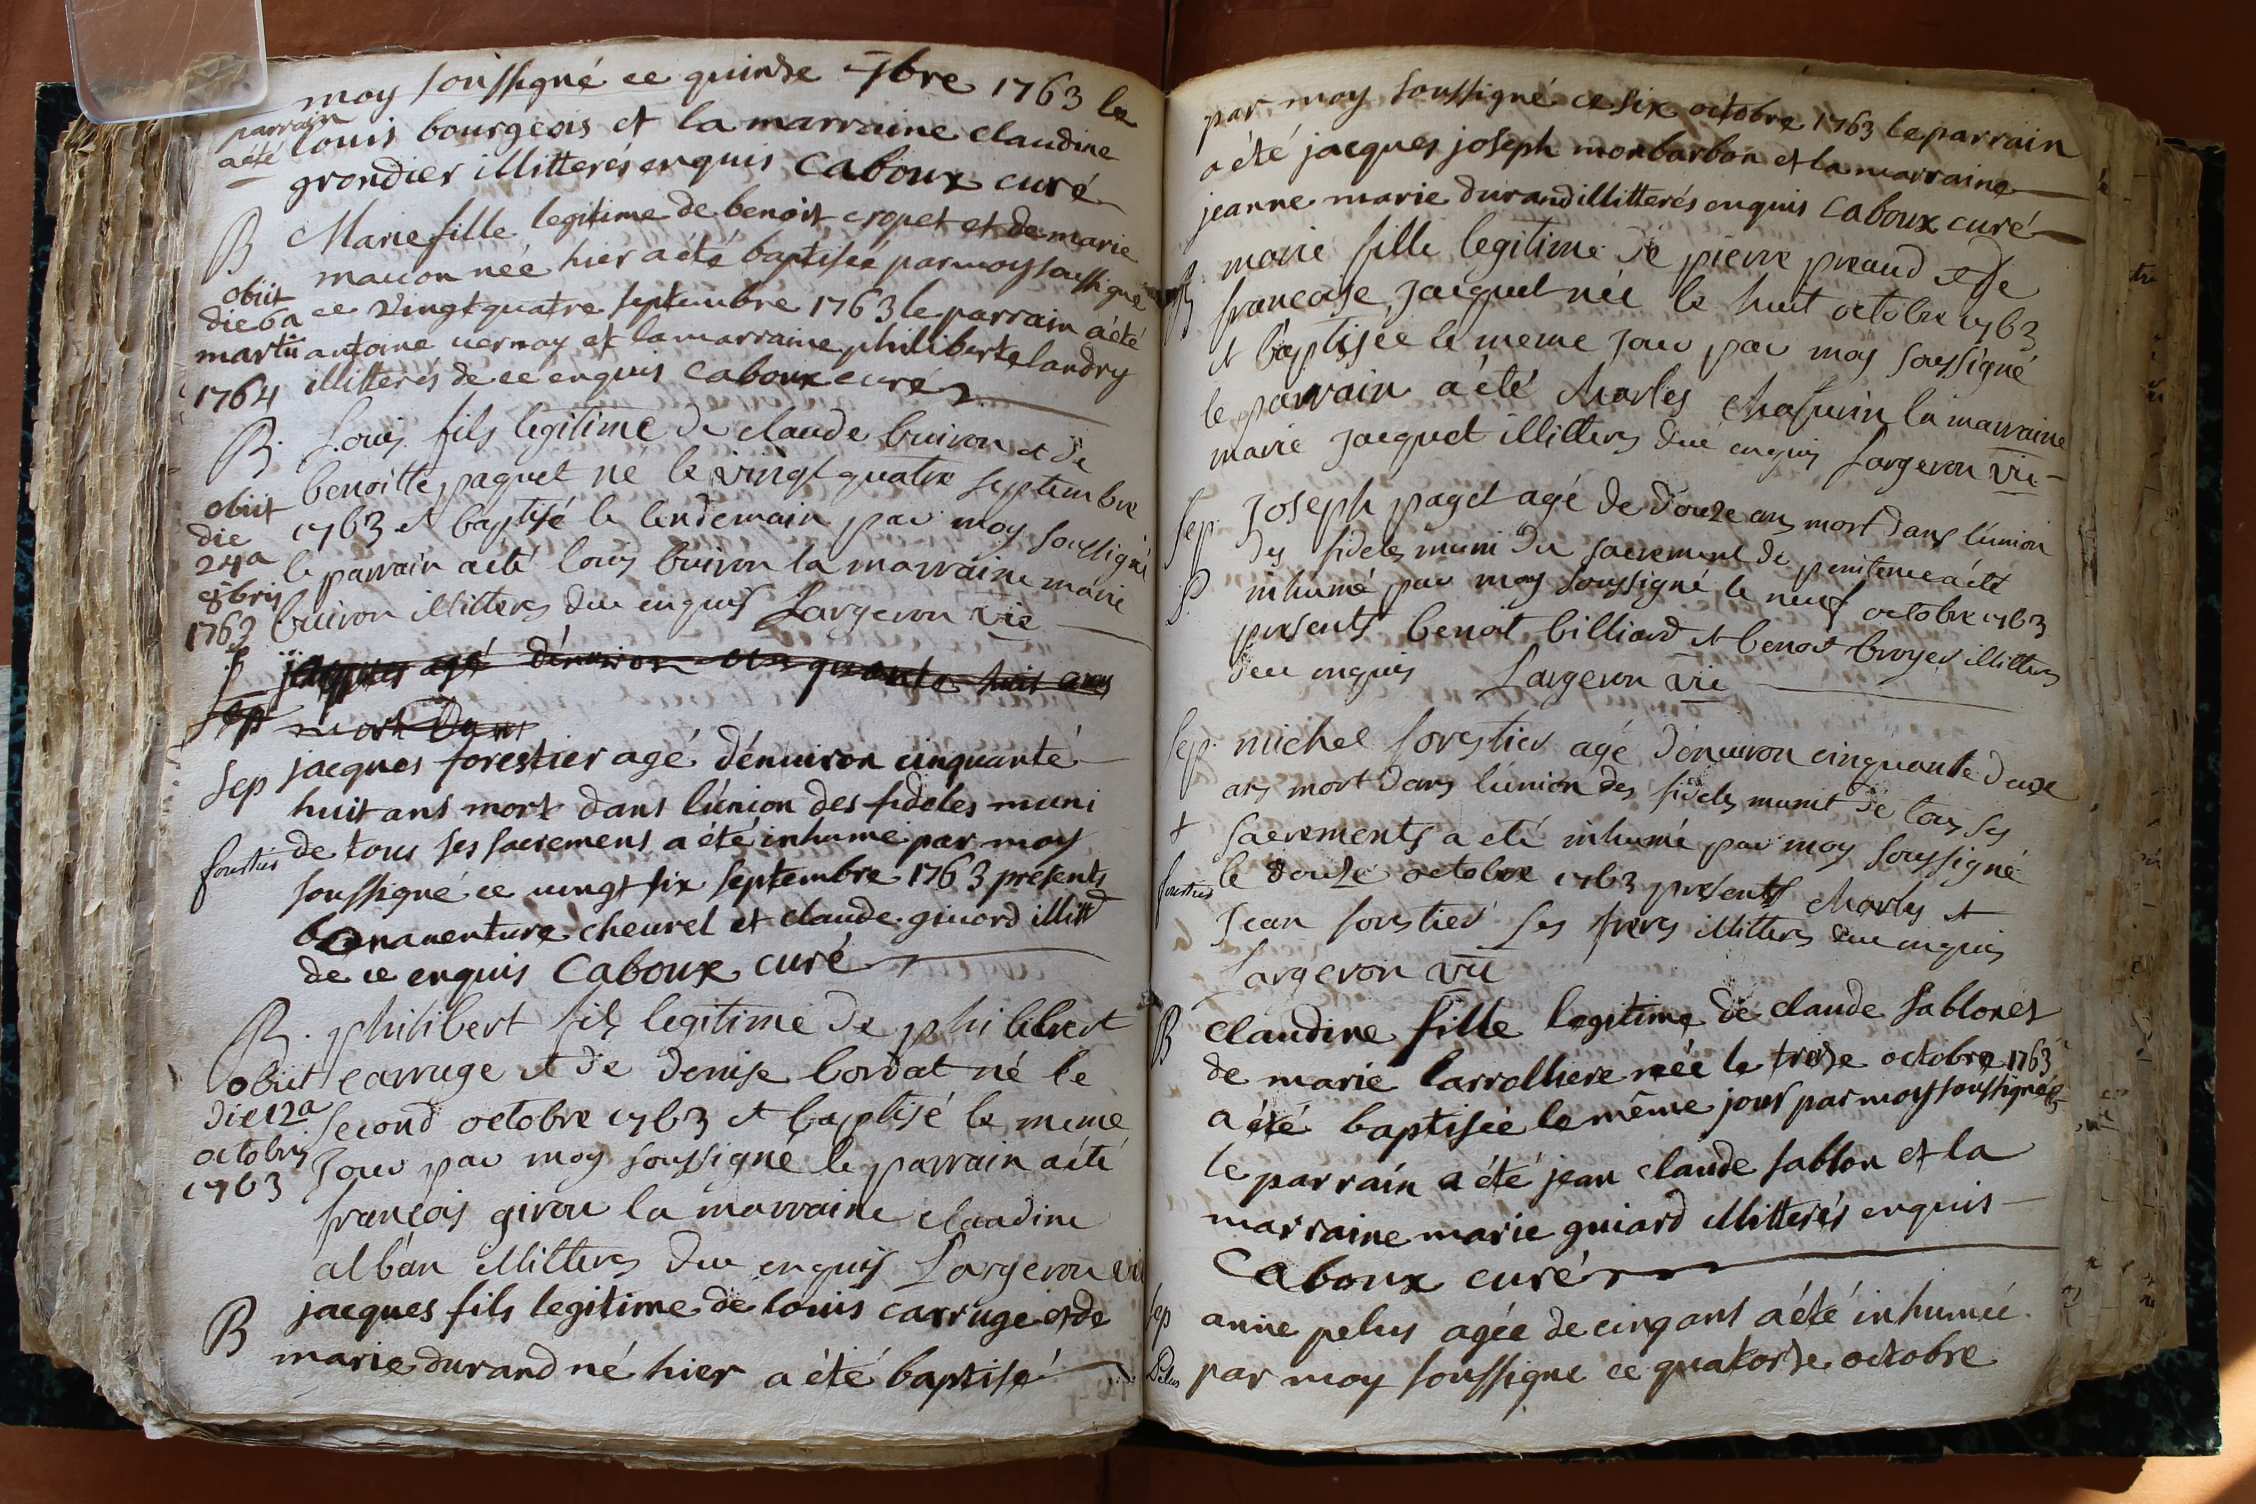 moy soussigné ce quinze 7bre 1763 le
parrain
a été louis bourgeois et la marraine claudine
grondier illitterés enquis Caboux curé
B Marie fille legitime de benoit cropet et de marie
maucon née hier a été baptisée par moy soussigné
obiit
die 6a
martii
1764
ce vingt quatre septembre 1763 le parrain a été
antoine vernay et la marraine philiberte landry
illitterés de ce enquis Caboux curé
B. Louis fils legitime de claude buiron et de
benoitte paquet né le vingt quatre septembre
obiit
die
24a
8bris
1763
1763 et baptisé le lendemain par moy soussigné
le parrain a été louis buiron la marraine marie
buiron illitteres due enquis Largeron vic
jacques agé dénviron cinquante huit ans
Sep mort Dans
Sep jacques forestier agé dénviron cinquante
huit ans mort dans l'union des fideles muni
forestier de tous ses sacremens a été inhumé par moy
soussigné ce vingt six septembre 1763 présents
bonaventure chevrel et claude givord illitt
de ce enquis Caboux curé
B. philibert fils legitime de philibert
obiit
die 12a
octobris
1763
carruge et de denise bordat né le
second octobre 1763 et baptisé le meme
jour par moy soussigné le parrain a été
françois girou la marraine claudine
alban illitteres due enquis Largeron vi
B jacques fils legitime de louis carruge et de
marie durand né hier a été baptisé
par moy soussigné ce six octobre 1763 le parrain
a été jacques joseph monbarbon et la marraine
jeanne marie durand illitterés enquis Caboux curé
B marie fille legitime de pierre preaud et de
françoise jacquet née le huit octobre 1763
et baptisée le meme jour par moy soussigné
le parrain a été charles chafurin la marraine
marie jacquet illitteres due enquis Largeron vic
Sep. Joseph paget agé de douze ans mort dans l'union
des fideles muni du sacrement de penitence a été
P. inhumé par moy soussigné le neuf octobre 1763
presents benoit billiard et benoit broyer illitteres
due enquis Largeron vic
Sep. michel forestier agé dénviron cinquante deux
ans mort dans l'union des fideles munit de tous ses
sacrements a eté inhumé par moy soussigné
forestier le douze octobre 1763 presents charles et
Jean forestier ses freres illitteres due enquis
Largeron vic
B claudine fille legitime de claude sablon et
de marie larrolliere née le treize octobre 1763
a été baptisée le même jour par moy soussigné
le parrain a été jean claude sablon et la
marraine marie guiard illitterés enquis
Caboux curé
Sep anne pelus agée de cinq ans a été inhumée
Pelus par moy soussigné ce quatorze octobre